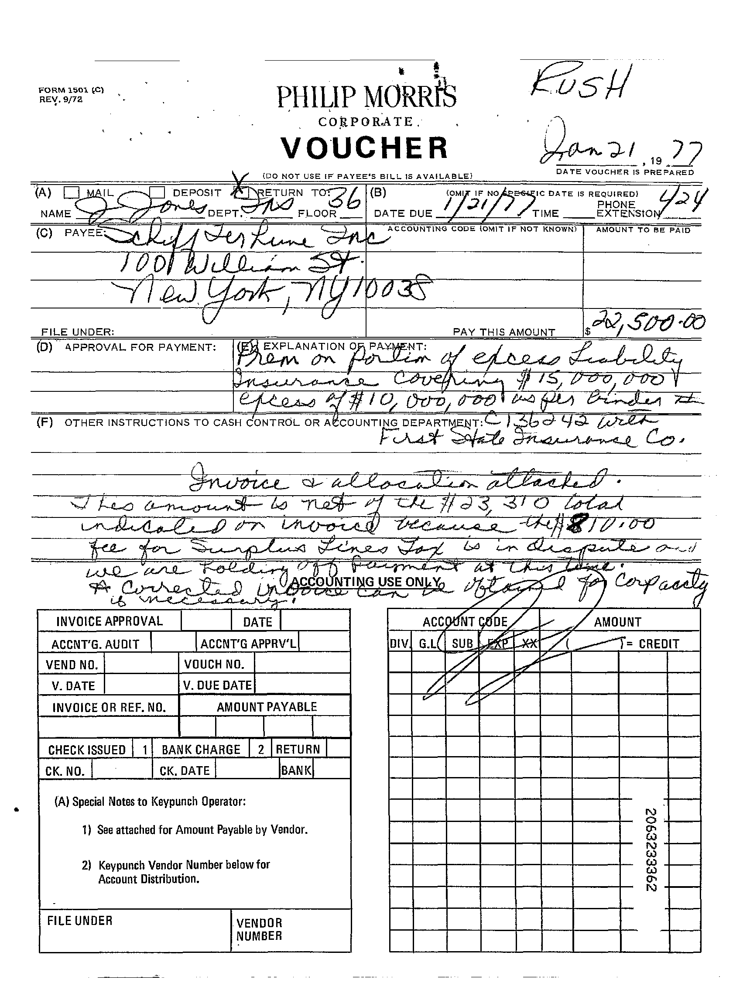 RUSH
FORM 1501 (C)
REV. 9/72
PHILIP MORRIS
CORPORATE
VOUCHER
Jan 21, 19 77
DATE VOUCHER IS PREPARED
(DO NOT USE IF PAYEE'S BILL IS AVAILABLE)
(A) MAIL DEPOSIT X RETURN TO: 36
NAME J Jones DEPT. Ins FLOOR
(B) (OMIT IF NO SPECIFIC DATE IS REQUIRED)
DATE DUE 1/21/77 TIME PHONE EXTENSION 424
(C) PAYEE: Schiff Terhune Inc
ACCOUNTING CODE (OMIT IF NOT KNOWN) AMOUNT TO BE PAID
1001 William St.
New York, NY 10038
FILE UNDER: PAY THIS AMOUNT $ 22,500.00
(D) APPROVAL FOR PAYMENT: (E) EXPLANATION OF PAYMENT:
Prem on portion of excess Liability
Insurance covering $15,000,000
excess of $10,000,000 as per binder #
(F) OTHER INSTRUCTIONS TO CASH CONTROL OR ACCOUNTING DEPARTMENT: C136242 with
First State Insurance Co.
Invoice & allocation attached.
This amount is net of the $23,310 total
indicated on invoice because the $810.00
fee for Surplus Lines Tax is in dispute and
we are holding off payment at this time.
A corrected invoice can be obtained for
is necessary.
ACCOUNTING USE ONLY
INVOICE APPROVAL DATE
ACCNT'G. AUDIT ACCNT'G APPRV'L
VEND NO. VOUCH NO.
V. DATE V. DUE DATE
INVOICE OR REF. NO. AMOUNT PAYABLE
CHECK ISSUED 1 BANK CHARGE 2 RETURN
CK. NO. CK. DATE BANK
(A) Special Notes to Keypunch Operator:
1) See attached for Amount Payable by Vendor.
2) Keypunch Vendor Number below for
Account Distribution.
FILE UNDER VENDOR
NUMBER
ACCOUNT CODE AMOUNT
DIV. G.L. SUB EXP XX ( ) = CREDIT
2063233362